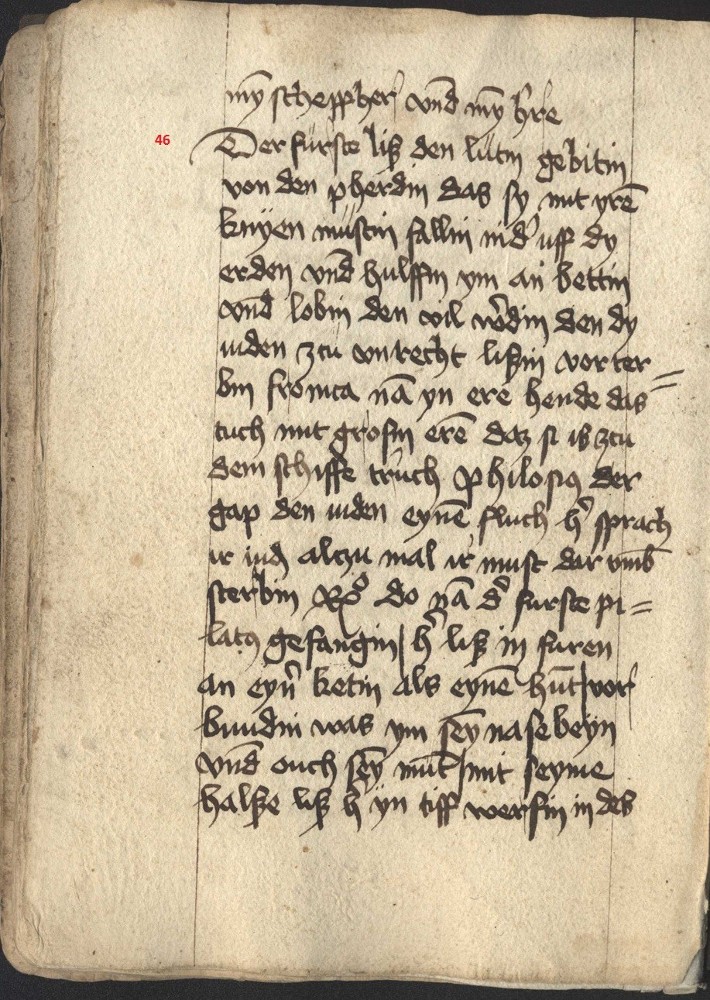 mȳ scheppher vnd mȳ h're
46
Der furste liß den lutin gebitin
von den pherdin das sy mit yrē
knyen mustin fallin nid' uff dy
erden vnd hulffin ym an bettin
vnd lobin den vil w'din den dy
iuden zcu vnrecht lißin vorter=
bin fronica nā yn ere hende das
tuch mit grosin erē daz si is zcu
dem schiffe truch philosius der
gap den iuden eynē fluch h' sprach
ir iudin alczu mal ir must dar vmb
sterbin do nā d' furste pi=
latus gefangin h' liß in furen
an eyn' ketin als eynē hūt vor
bundin was ym sēy nasebeyn
vnd ouch sēy mūt mit seyme
halße liß h' yn tiff werfin in des